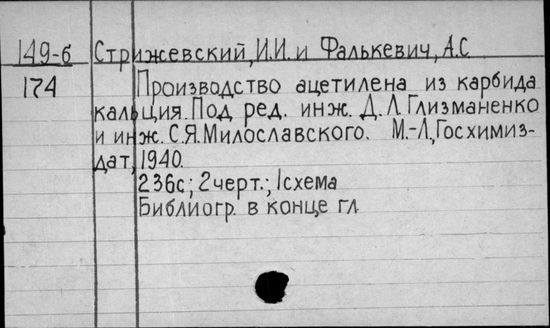 149-б Стрижевский, И.И. и Фалькевич, А.С
174 Производство ацетилена из карбида
кальция. Под ред. инж. Д.Л. Глизманенко
и инж. С.Я. Милославского. М.-Л., Госхимиз-
дат, 1940.
236с; 2черт.; 1схема
Библиогр. в конце гл